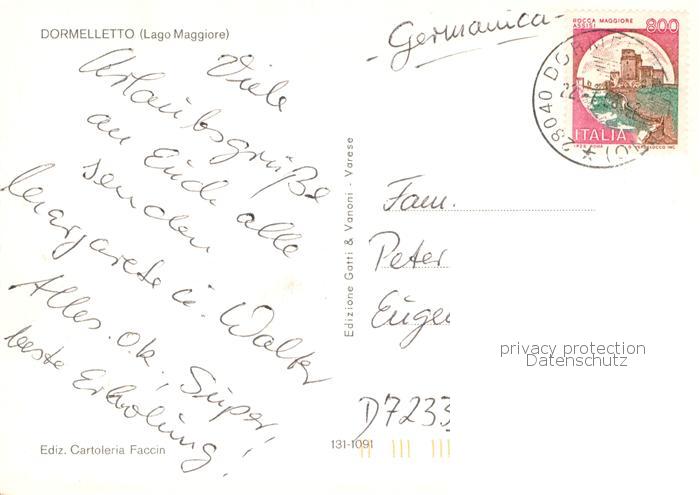 DORMELLETTO (Lago Maggiore)
Viele
Urlaubsgrüße
an Euch alle
senden
Margarete u. Walter
Alles o.k., Super,
beste Erholung!
Ediz. Cartoleria Faccin
Edizione Gatti & Vanoni - Varese
131-1091
- Germanica -
ROCCA MAGGIORE
ASSISI
800
ITALIA
28040 DORM
Fam.
Peter
Euge
D7233
privacy protection
Datenschutz